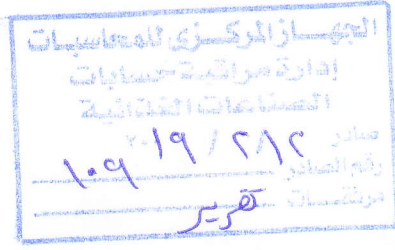 الجهاز المركزى للمحاسبات
إدارة مراقبة حسابات
الصناعات الغذائية
صادر ١٩ / ٢ / ٢٠١٢
رقم الصادر ١٠٩
مرفقات تقرير